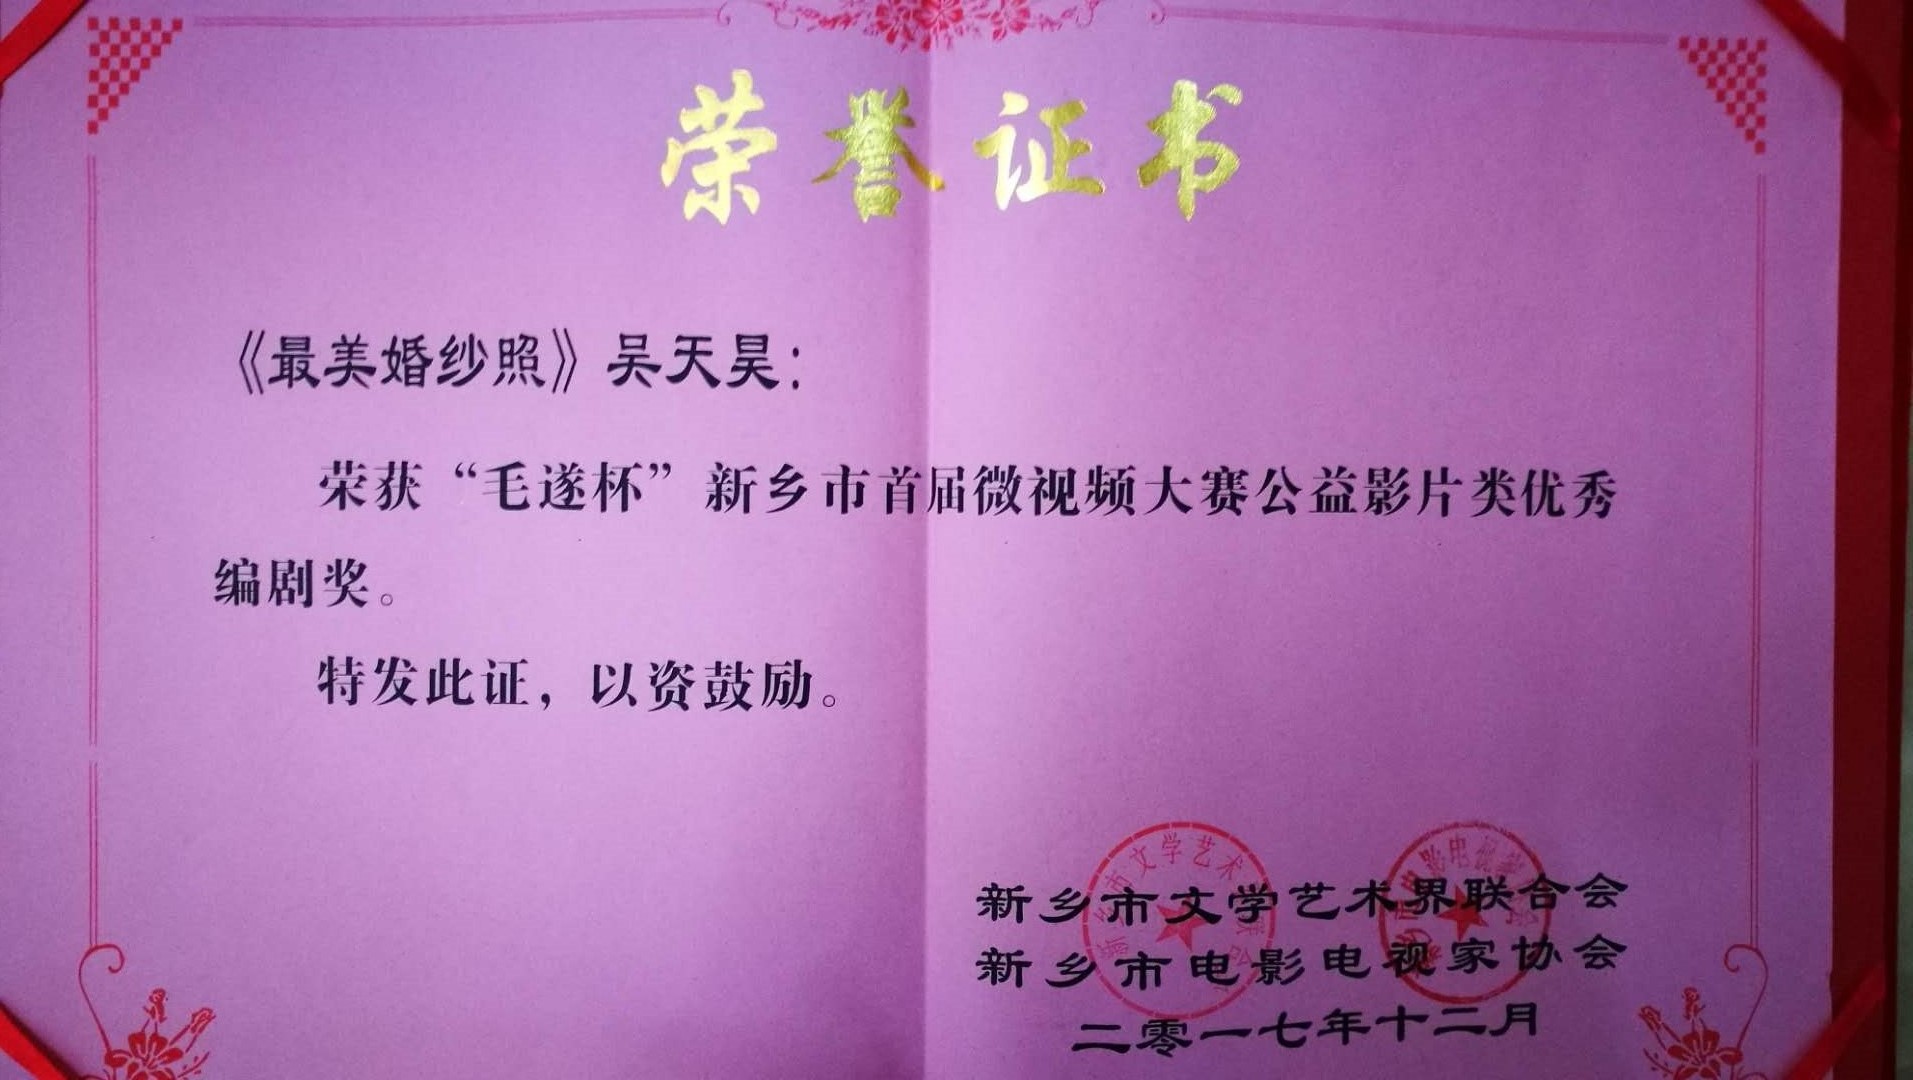 荣誉证书
《最美婚纱照》吴天昊：
荣获“毛遂杯”新乡市首届微视频大赛公益影片类优秀
编剧奖。
特发此证，以资鼓励。
新乡市文学艺术界联合会
新乡市电影电视家协会
二零一七年十二月